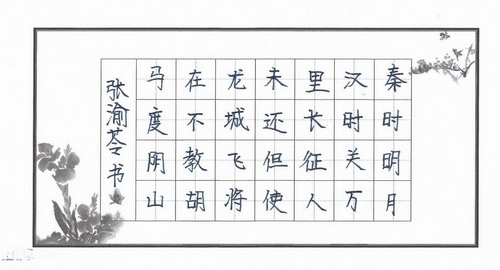 秦时明月
汉时关万
里长征人
未还但使
龙城飞将
在不教胡
马度阴山
张渝苓书